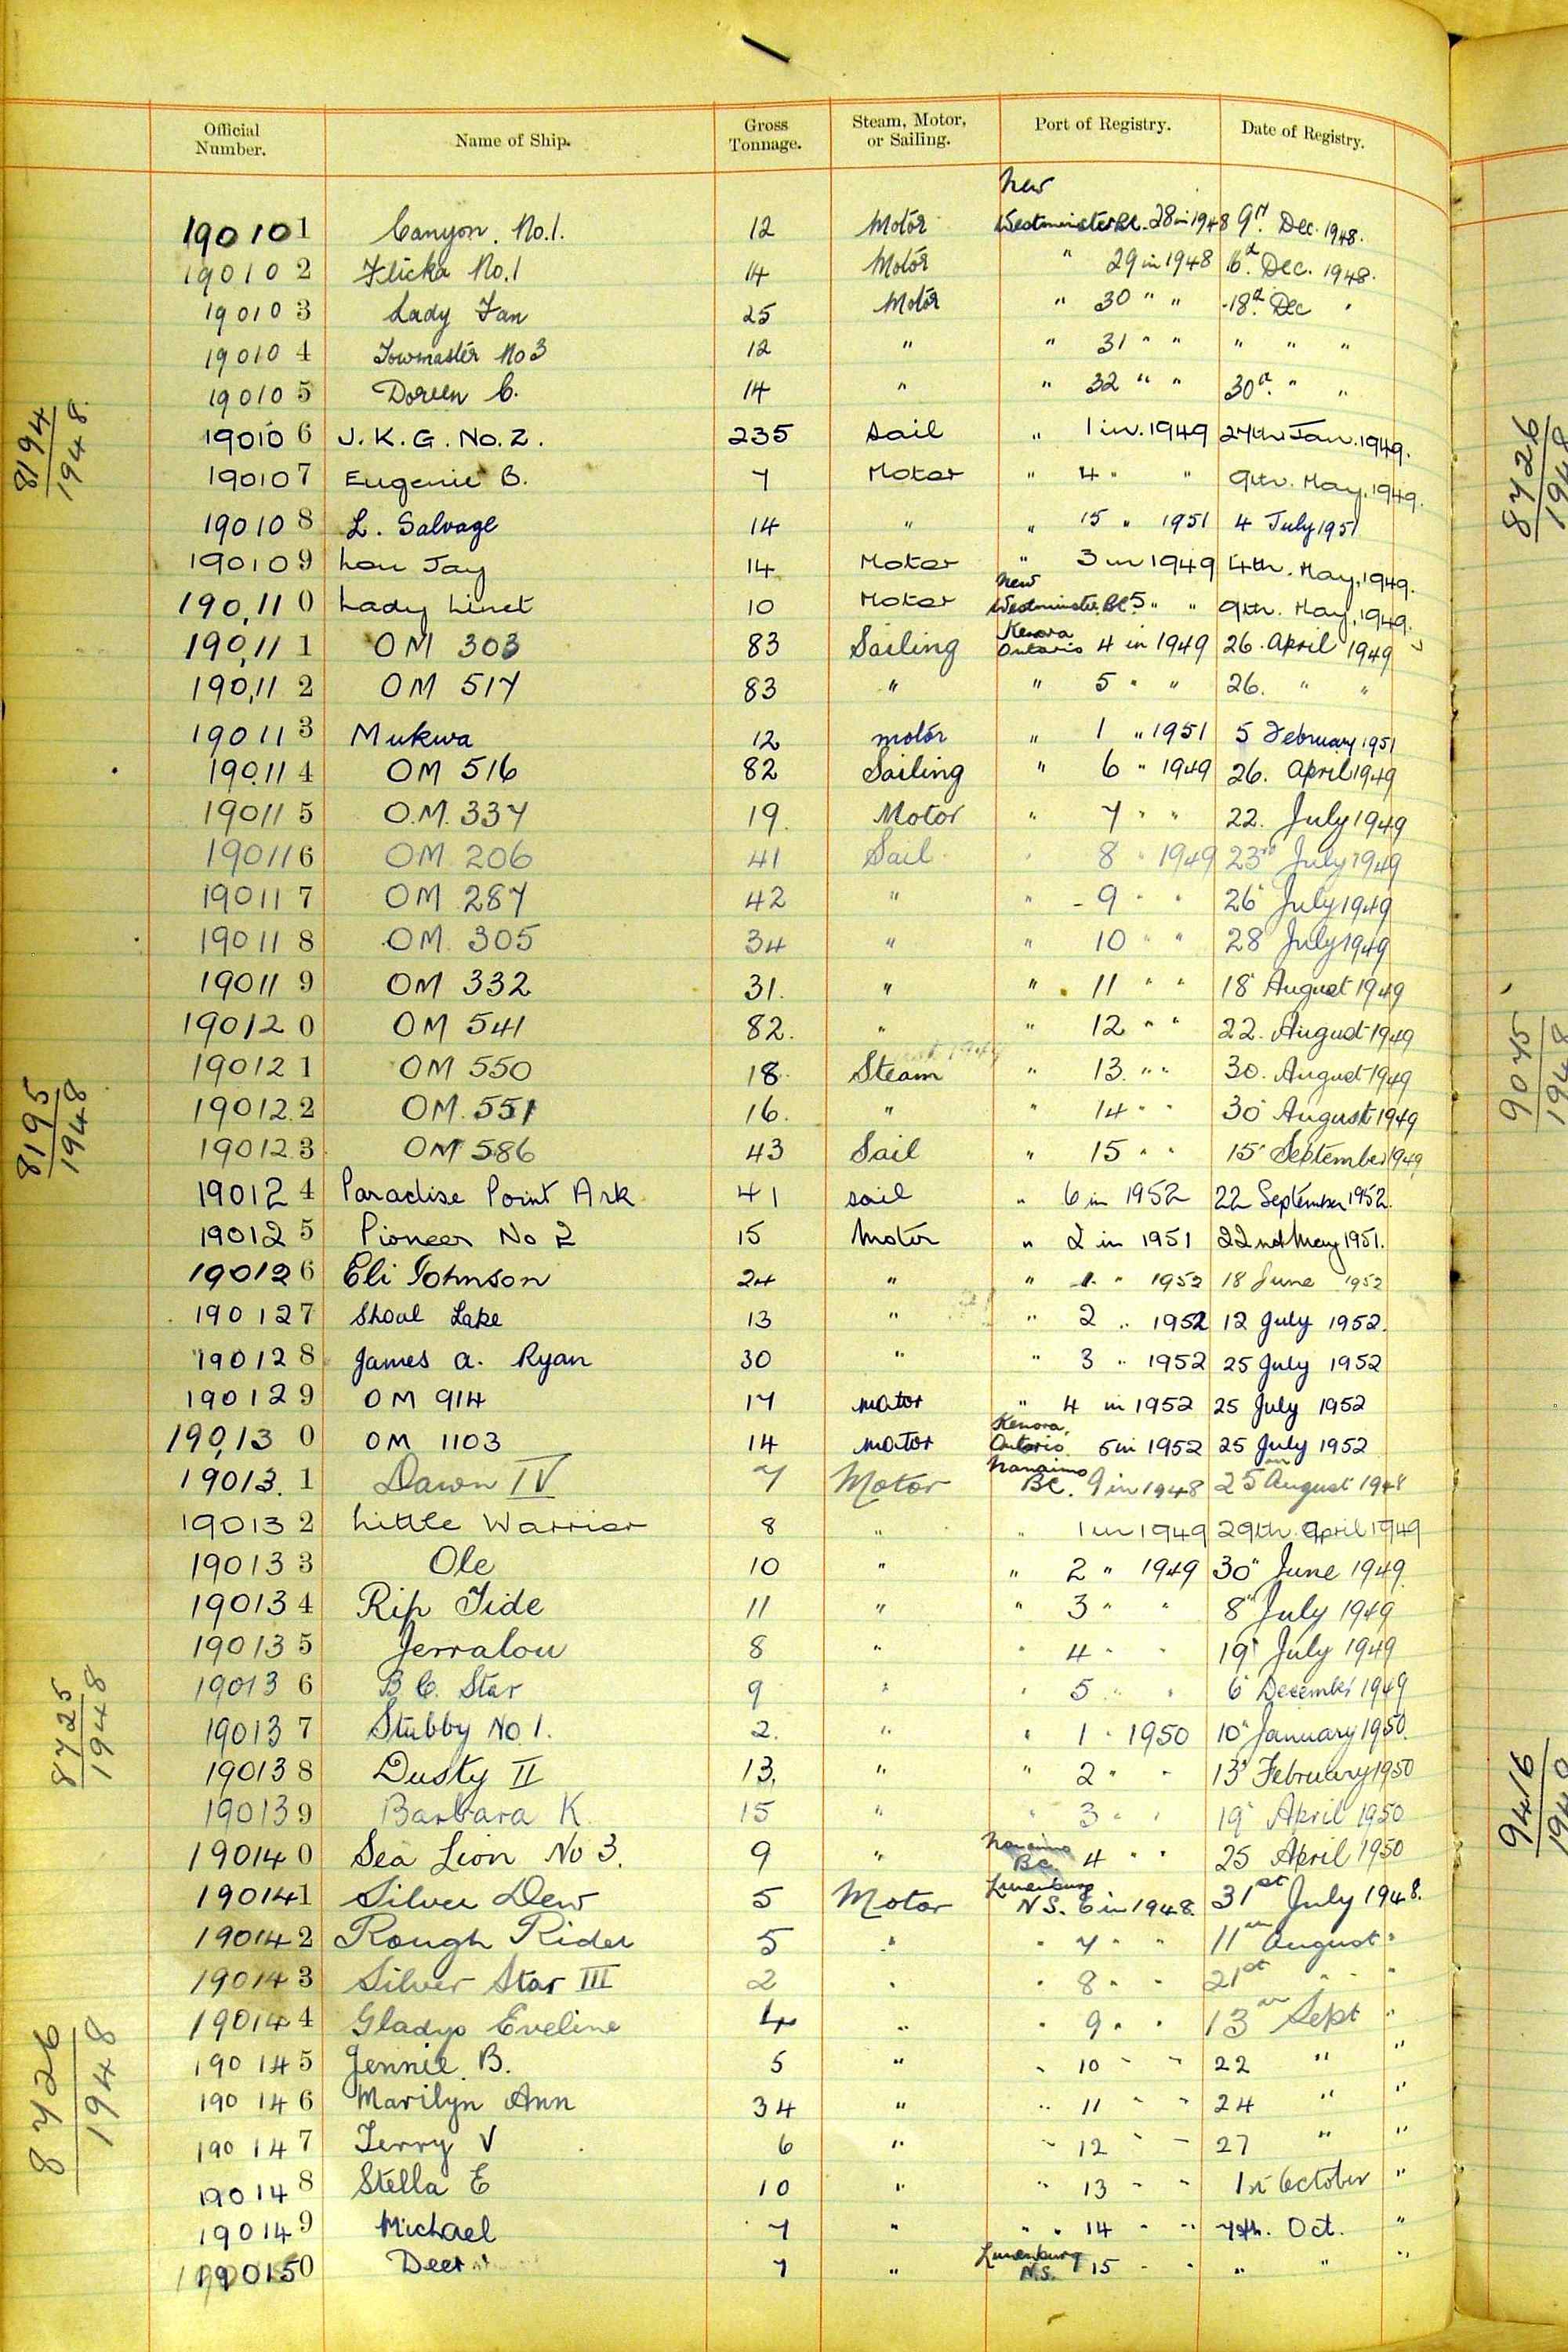 Official Number. Name of Ship. Gross Tonnage. Steam, Motor, or Sailing. Port of Registry. Date of Registry.
New
190101 Canyon. No.1. 12 Motor Westminster B.C. 28 in 1948 9th. Dec. 1948.
190102 Flicka No.1 14 Motor " 29 in 1948 16th. Dec. 1948.
190103 Lady Fan 25 Motor " 30 " " 18th. Dec "
190104 Towmaster No 3 12 " " 31 " " " " "
190105 Doreen C. 14 " " 32 " " 30th. " "
190106 J.K.G. No. 2. 235 Sail " 1 in. 1949 27th Jan. 1949.
190107 Eugenie B. 7 Motor " 4 " " 9th. May, 1949.
190108 L. Salvage 14 " " 15 " 1951 4 July 1951
190109 Lou Jay 14 Motor " 3 in 1949 4th. May, 1949.
190,110 Lady Linet 10 Motor New Westminster, B.C. 5 " " 9th. May, 1949.
190,111 OM 303 83 Sailing Kenora Ontario 4 in 1949 26. April 1949
190,112 OM 517 83 " " 5 " " 26. " "
190113 Mukwa 12 motor " 1 " 1951 5 February 1951
190114 OM 516 82 Sailing " 6 " 1949 26. April 1949
190115 O.M. 337 19. Motor " 7 " " 22. July 1949
190116 OM 206 41 Sail " 8 " 1949 23rd July 1949
190117 OM 287 42 " " - 9 " " 26" July 1949
190118 OM 305 34 " " 10 " " 28 July 1949
190119 OM 332 31. " " 11 " " 18" August 1949
190120 OM 541 82. " " 12 " " 22. August 1949
190121 OM 550 18 Steam " 13. " " 30. August 1949
190122 OM. 551 16. " " 14 " " 30" August 1949
190123 OM 586 43 Sail " 15 " " 15" September 1949
190124 Paradise Point Ark 41 sail " 6 in 1952 22 September 1952.
190125 Pioneer No 2 15 Motor " 2 in 1951 22nd May 1951.
190126 Eli Johnson 24 " " 1. " 1952 18 June 1952
190127 Shoal Lake 13 " " 2 " 1952 12 July 1952.
190128 James A. Ryan 30 " " 3 " 1952 25 July 1952
190129 OM 914 17 motor " 4 in 1952 25 July 1952
190,130 OM 1103 14 motor Kenora, Ontario. 5 in 1952 25 July 1952
190131 Dawn IV 7 Motor Nanaimo BC. 9 in 1948 25th August 1948
190132 Little Warrior 8 " " 1 in 1949 29th April 1949
190133 Ole 10 " " 2 " 1949 30" June 1949.
190134 Rip Tide 11 " " 3 " " 8" July 1949
190135 Jerralou 8 " " 4 " " 19" July 1949
190136 B.C. Star 9 " " 5 " " 6" December 1949
190137 Stubby No 1. 2. " " 1 " 1950 10" January 1950.
190138 Dusty II 13. " " 2 " " 13" February 1950
190139 Barbara K. 15 " " 3 " " 19" April 1950
190140 Sea Lion No 3. 9 " Nanaimo BC. 4 " " 25 April 1950
190141 Silver Dew 5 Motor Lunenburg N.S. 6 in 1948. 31st July 1948.
190142 Rough Rider 5 " " 7 " " 11th August "
190143 Silver Star III 2 " " 8 " " 21st " "
190144 Gladys Eveline 4 " " 9 " " 13th Sept "
190145 Jennie. B. 5 " " 10 " " 22 " "
190146 Marilyn Ann 34 " " 11 " " 24 " "
190147 Terry V 6 " " 12 " " 27 " "
190148 Stella E 10 " " 13 " " 1st October "
190149 Michael 7 " " 14 " " 7th. Oct. "
190150 Deer 7 " Lunenburg N.S. 15 " " " " "
8194
1948
8195
1948
8725
1948
8726
1948
8726
9045
9416